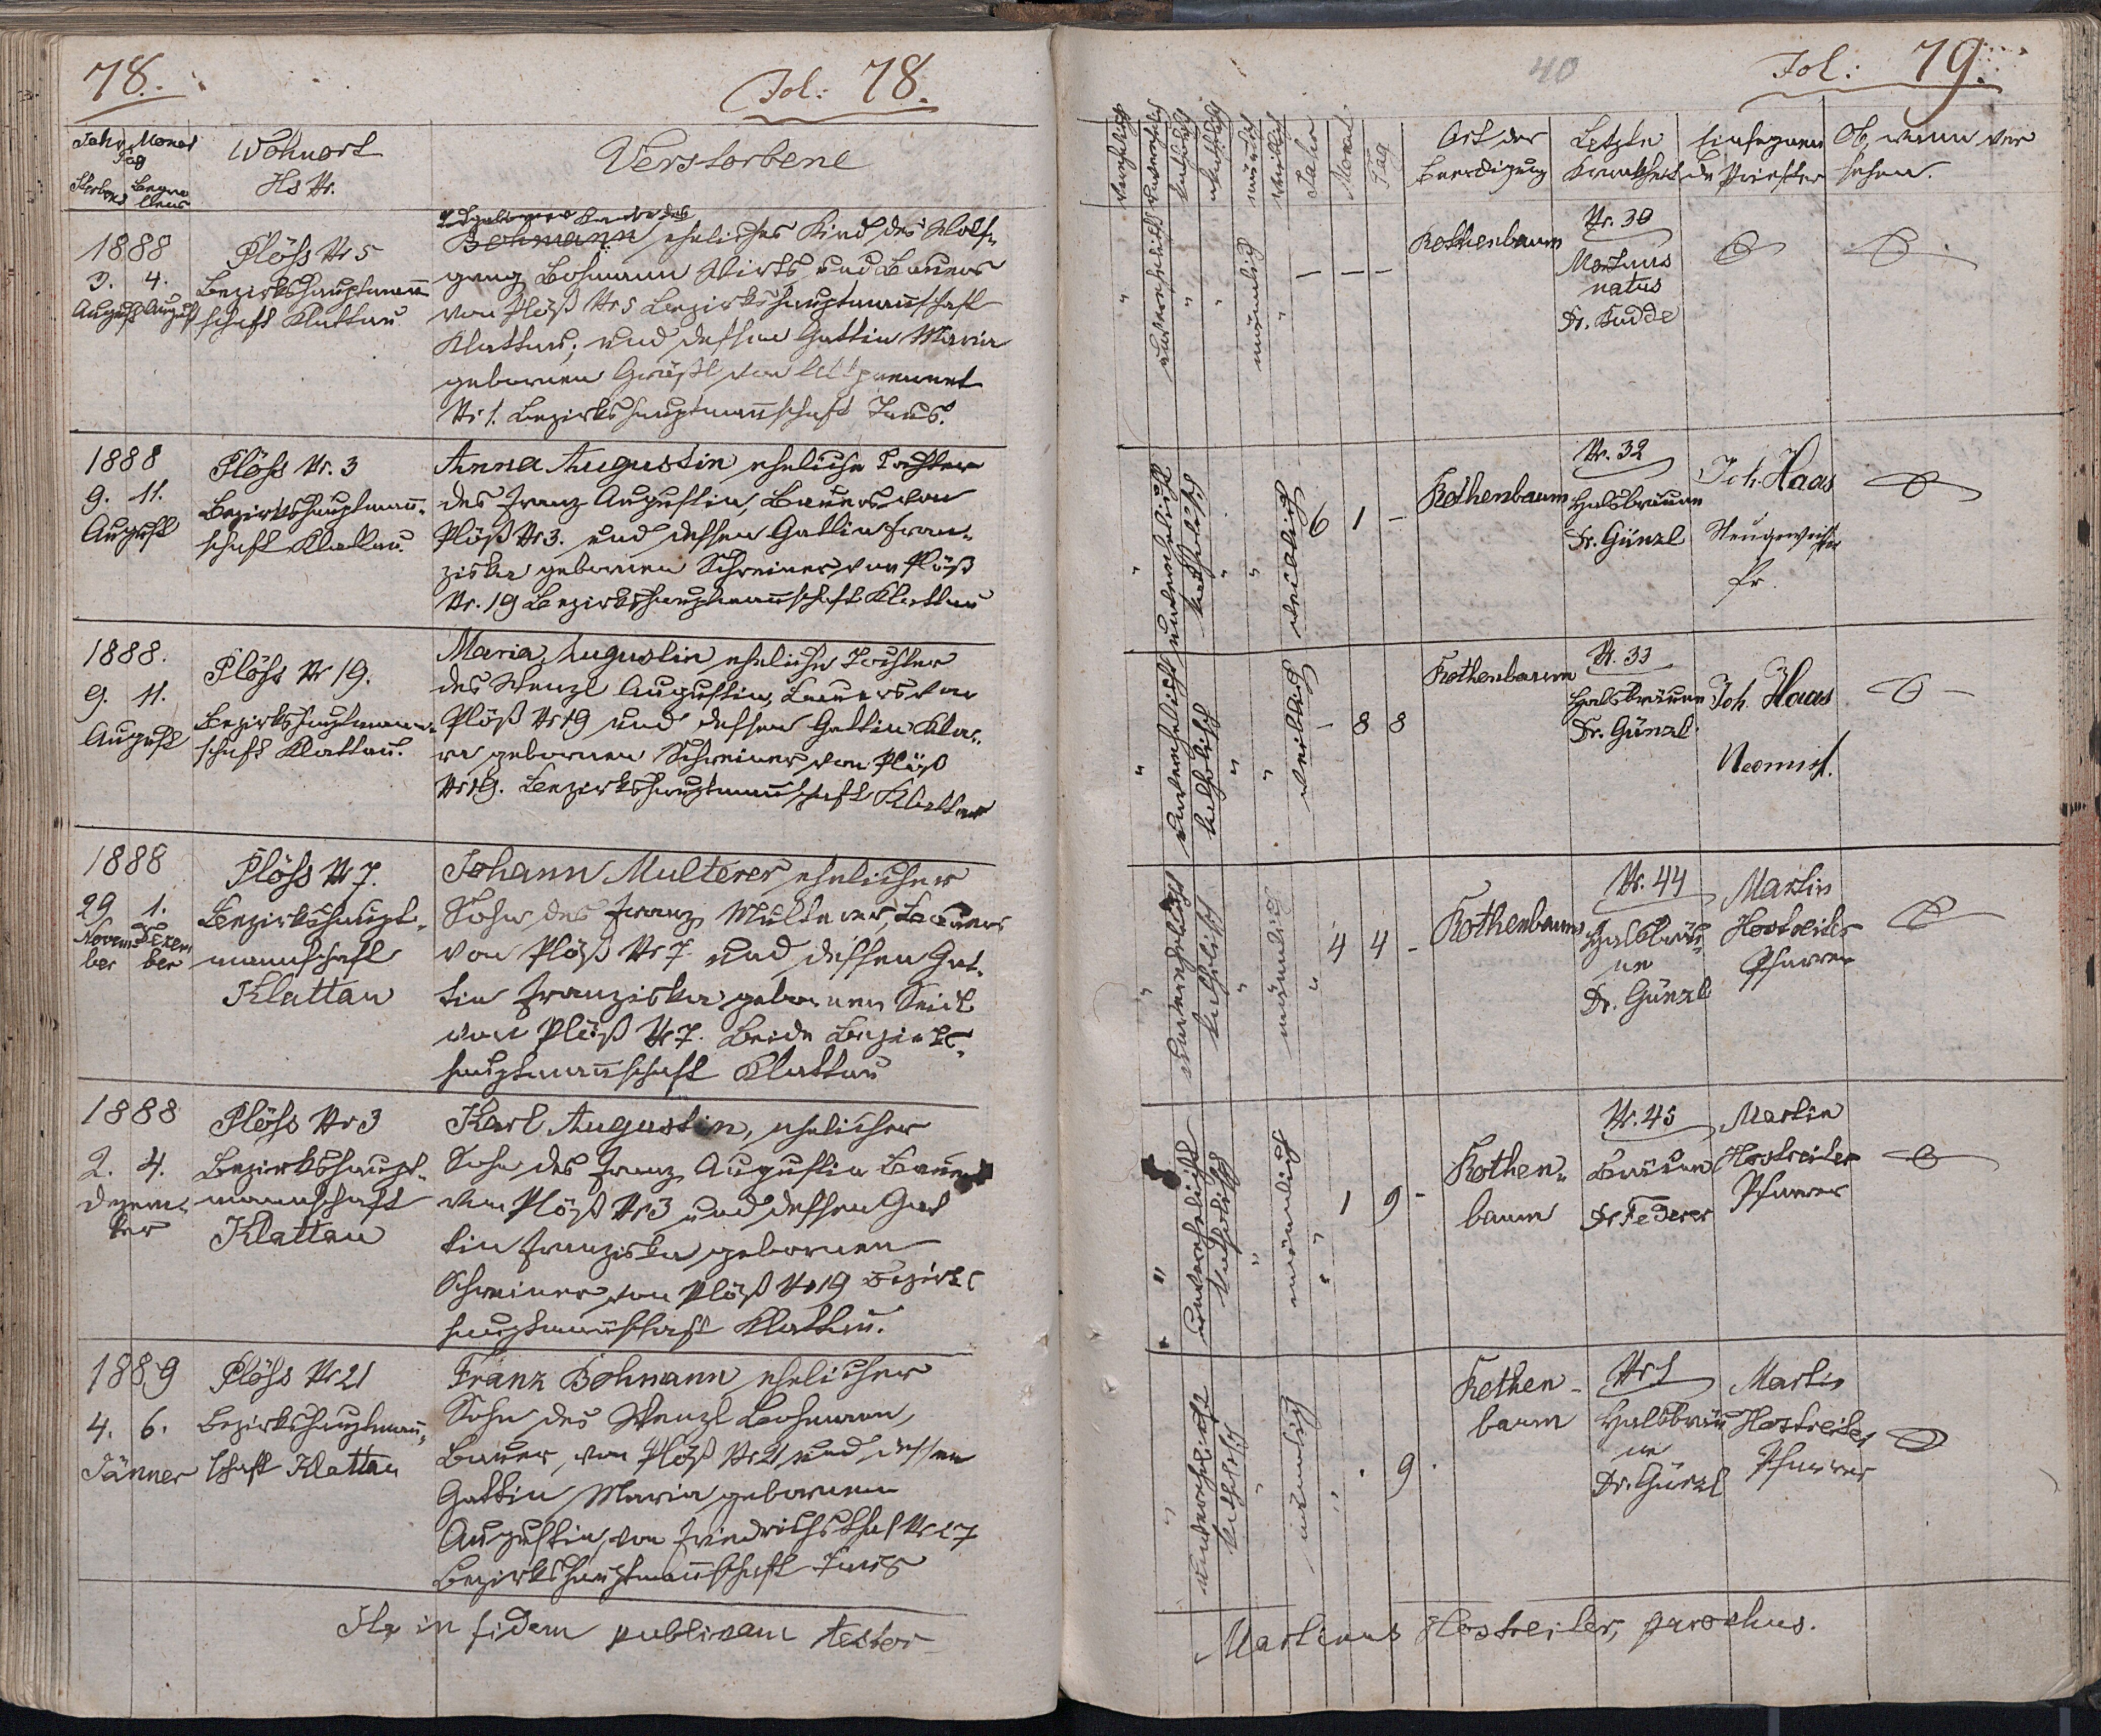 78.
Fol: 78.
Jahr Monat
Tag
Sterbens Begräbnisses
Wohnort
Hs Nr.
Verstorbene
1888
3. 4.
August August
Plöss Nr 5
Bezirkshauptmann
schaft Klattau
Todgeborner Knabe des
Bohmann eheliches Kind des Wolf-
gang Bohmann Wirts und Bauers
von Plöß Nr 5 Bezirkshauptmannschaft
Klattau; und dessen Gattin Maria
gebornen
Nr 1. Bezirkshauptmannschaft Taus.
1888
9. 11.
August
Plöss Nr. 3
Bezirkshauptmann-
schaft Klattau.
Anna Augustin eheliche Tochter
des Franz Augustin, Bauers von
Plöß Nr 3. und dessen Gattin Fran-
ziska gebornen Schreiner von Plöß
Nr. 19 Bezirkshauptmannschaft Klattau
1888.
9. 11.
August
Plöss Nr 19.
Bezirkshauptmann-
schaft Klattau.
Maria Augustin eheliche Tochter
des Wenzl Augustin, Bauers von
Plöß Nr 19 und dessen Gattin Kla-
ra gebornen Schreiner von Plöß
Nr 19. Bezirkshauptmannschaft Klattau
1888
29 1.
Novem Dezem
ber ber
Plöss Nr 7.
Bezirkshaupt-
mannschaft
Klattau
Johann Multerer ehelicher
Sohn des Franz Multerer, Bauers
von Plöß Nr 7 und dessen Gat-
tin Franziska gebornen Seidl
von Plöß Nr 7. Beide Bezirks-
hauptmannschaft Klattau
1888
2. 4.
Dezem-
ber
Plöss Nr 3
Bezirkshaupt-
mannschaft
Klattau
Karl Augustin, ehelicher
Sohn des Franz Augustin Bauer
von Plöß Nr 3 und dessen Gat
tin Franziska gebornen
Schreiner von Plöß Nr 19 Bezirks
hauptmannschaft Klattau.
1889
4. 6.
Jänner
Plöss Nr 21
Bezirkshauptmann-
schaft Klattau
Franz Bohmann ehelicher
Sohn des Wenzl Bohmann,
Bauer, von Plöß Nr 21 und dessen
Gattin Maria gebornen
Augustin, von Friedrichsthal Nr 27
Bezirkshauptmannschaft Taus
Ita in fidem publicam testor
40
Fol: 79.
verehelicht
unverehelicht
katholisch
männlich
weiblich
Jahr
Monat
Tag
Art der
Beerdigung
Letzte
Krankheit
Einsegnen
de Priester
Ob, wann ver
sehen.
" unverehelicht " " männlich " – – –
Rothenbaum
Nr. 30
Mortuus
natus
Dr. Budde
" unverehelicht katholisch " " weiblich 6 1 –
Rothenbaum
Nr. 32
Halsbräune
Dr. Günzl
Joh. Haas
Neugeweihter
Pr.
" unverehelicht katholisch " " weiblich – 8 8
Rothenbaum
Nr. 33
Halsbräune
Dr. Günzl.
Joh. Haas
Neomist.
" unverehelicht katholisch " männlich " 4 4 –
Rothenbaum
Nr. 44
Halsbräu-
ne
Dr. Günzl
Martin
Hostreiter
Pfarrer
" unverehelicht katholisch " männlich " 1 9 -
Rothen-
baum
Nr. 45
Bräune
Dr Federer
Martin
Hostreiter
Pfarrer
" unverehelicht katholisch " männlich " . 9 .
Rothen-
baum
Nr 1
Halsbräu
ne
Dr. Günzl
Martin
Hostreiter
Pfarrer
Martinus Hostreiter, parochus.